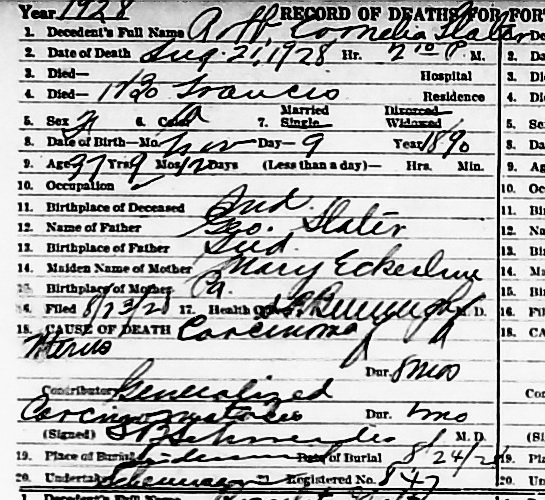 Year 1928 RECORD OF DEATHS FOR FOR
1. Decedent's Full Name Cornelia Slater
2. Date of Death Aug. 21, 1928 Hr. 2 10 P. M.
3. Died— Hospital
4. Died— 1120 Francis Residence
5. Sex F 6. Color 7. Married Single Divorced Widowed
8. Date of Birth—Mo. Nov Day— 9 Year 1890
9. Age 37 Yrs 9 Mos 12 Days (Less than a day)— Hrs. Min.
10. Occupation
11. Birthplace of Deceased Ind.
12. Name of Father Geo. Slater
13. Birthplace of Father Ind.
14. Maiden Name of Mother Mary
15. Birthplace of Mother
16. Filed 8/23/28 17. Health M. D.
18. CAUSE OF DEATH Carcinoma of
Uterus
Dur. 8 mos
Contributory Generalized
Carcinomatosis Dur. mo
(Signed) M. D.
19. Place of Burial Date of Burial 8/24/28
20. Undertaker Registered No. 847
1. Decedent's Full Name
2. Da
3. Di
4. Di
5. Se
8. Da
9. Ag
10. Oc
11. Bi
12. Na
13. Bi
14. Ma
15. Bir
16. Fil
18. CA
Con
(Si
19. Pl
20. Un